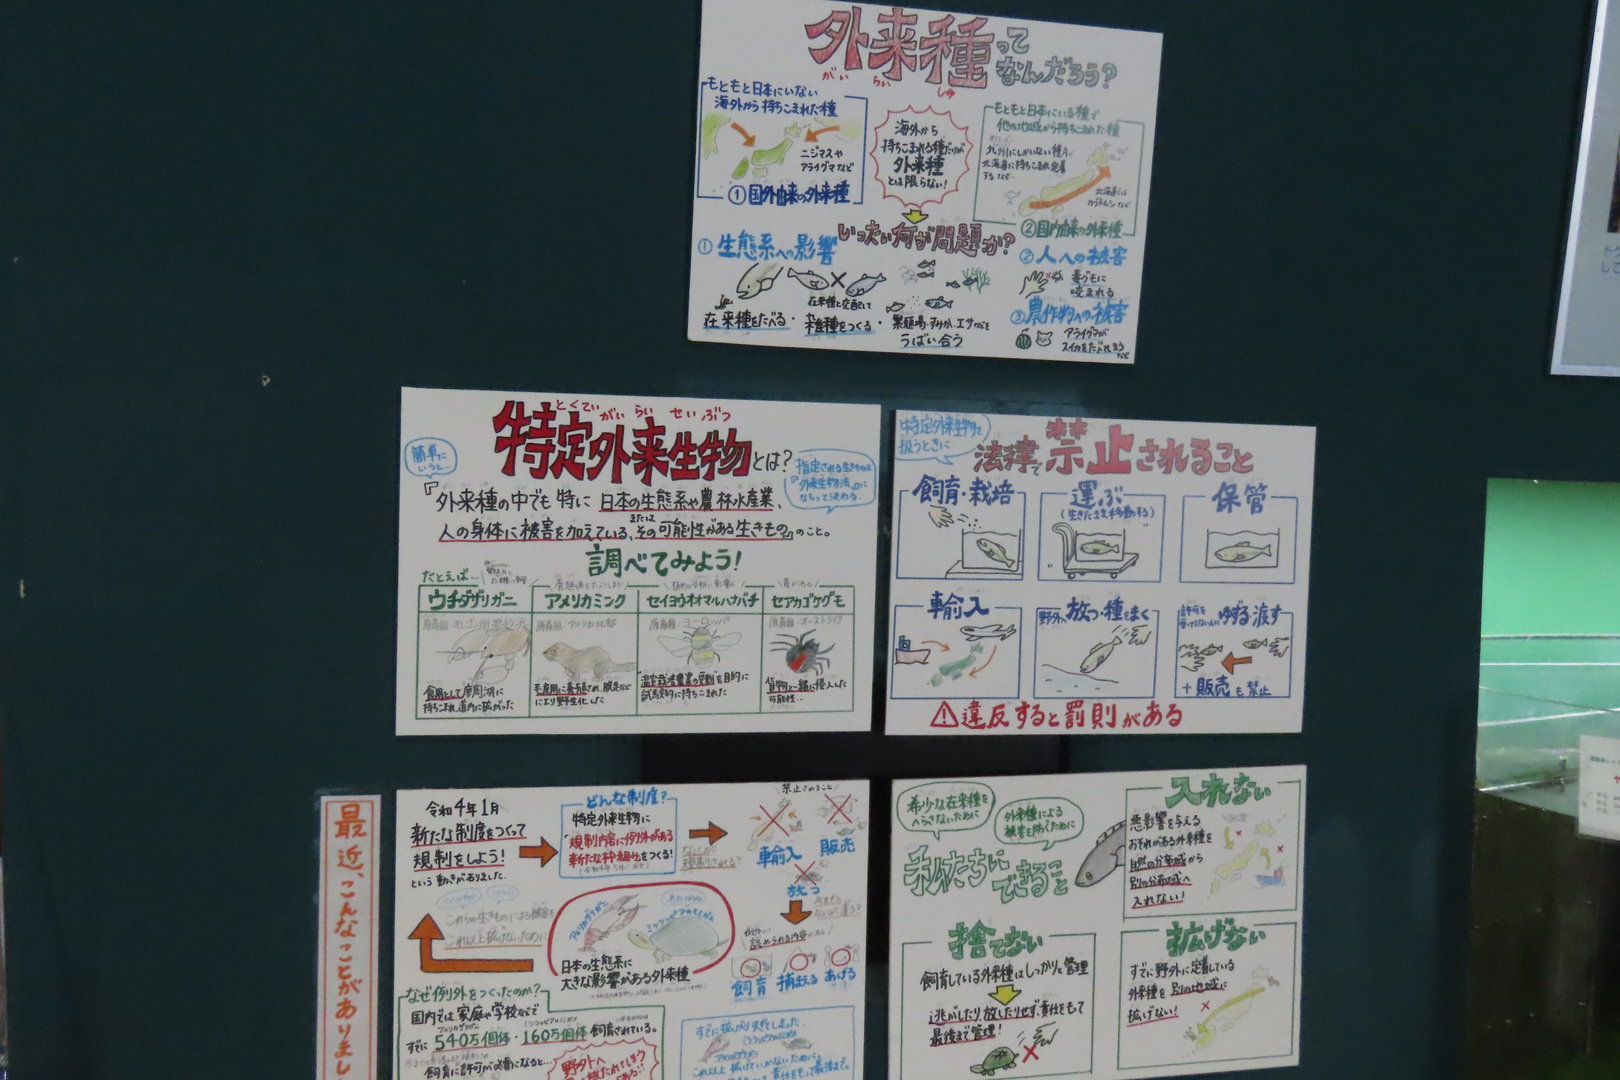 外来種って
なんだろう?
がい らい しゅ
もともと日本にいない
海外から持ちこまれた種
ニジマスや
アライグマなど
①国外由来の外来種
海外から
持ちこまれる種だけが
外来種
とは限らない!
もともと日本にいる種で
他の地域から持ちこまれた種
九州にしかいない種が
北海道に持ちこまれ定着
するなど…
北海道では
カブトムシなど
②国内由来の外来種
いったい何が問題か?
①生態系への影響
在来種と交配して
在来種をたべる・雑種をつくる・繁殖場・すみか、エサなどを
うばい合う
②人への被害
毒グモに
咬まれる
③農作物への被害
アライグマが
スイカをたべてしまう
など
とくてい がい らい せい ぶつ
特定外来生物とは?
簡単に
いうと…
指定される生きものは
『外来生物法』に
のっとって決める。
『外来種の中でも特に日本の生態系や農林水産業、
人の身体に被害を加えている、またはその可能性がある生きもの』のこと。
調べてみよう!
たとえば…
ウチダザリガニ
食用として摩周湖に
持ちこまれ、道内に拡がった
アメリカミンク
原産国・アメリカ北部
毛皮用に養殖され、脱走など
により野生化した
セイヨウオオマルハナバチ
原産国・ヨーロッパ
温室栽培農業の受粉を目的に
試験的に持ちこまれた
セアカゴケグモ
原産国・オーストラリア
貨物と一緒に侵入した
可能性…
特定外来生物を
扱うときに
法律で禁止されること
飼育・栽培
運ぶ
(生きたまま移動する)
保管
輸入
野外へ放つ・種をまく
許可を
受けてない人にゆずる・渡す
+販売も禁止
違反すると罰則がある
最近、こんなことがありまし
令和4年1月
新たな制度をつくって
規制をしよう!
という動きがありました。
どんな制度?
特定外来生物に
「規制内容に例外がある
新たな枠組み」をつくる!
禁止されること
輸入
販売
放つ
なにが
規制される?
これらの生きものによる被害を
これ以上拡げないために
アメリカザリガニ
ミシシッピアカミミガメ
日本の生態系に
大きな影響がある外来種
認められる内容
飼育
捕まえる
あげる
なぜ例外をつくったのか?
国内では家庭や学校などで
アメリカザリガニ ミシシッピアカミミガメ
すでに540万個体・160万個体飼育されている。
飼育に許可が必要になると…
野外へ
すでに拡がりすぎてしまった
アメリカザリガニ
ミシシッピアカミミガメ
これ以上拡げていかないために
責任をもって最後まで。
希少な在来種を
へらさないために
外来種による
被害を防ぐために
私たちに
できること
入れない
悪影響を与える
おそれがある外来種を
自然の分布域から
別の分布域へ
入れない!
捨てない
飼育している外来種はしっかりと管理
逃がしたり、放したりせず、責任をもって
最後まで管理!
拡げない
すでに野外に定着している
外来種を別の地域に
拡げない!